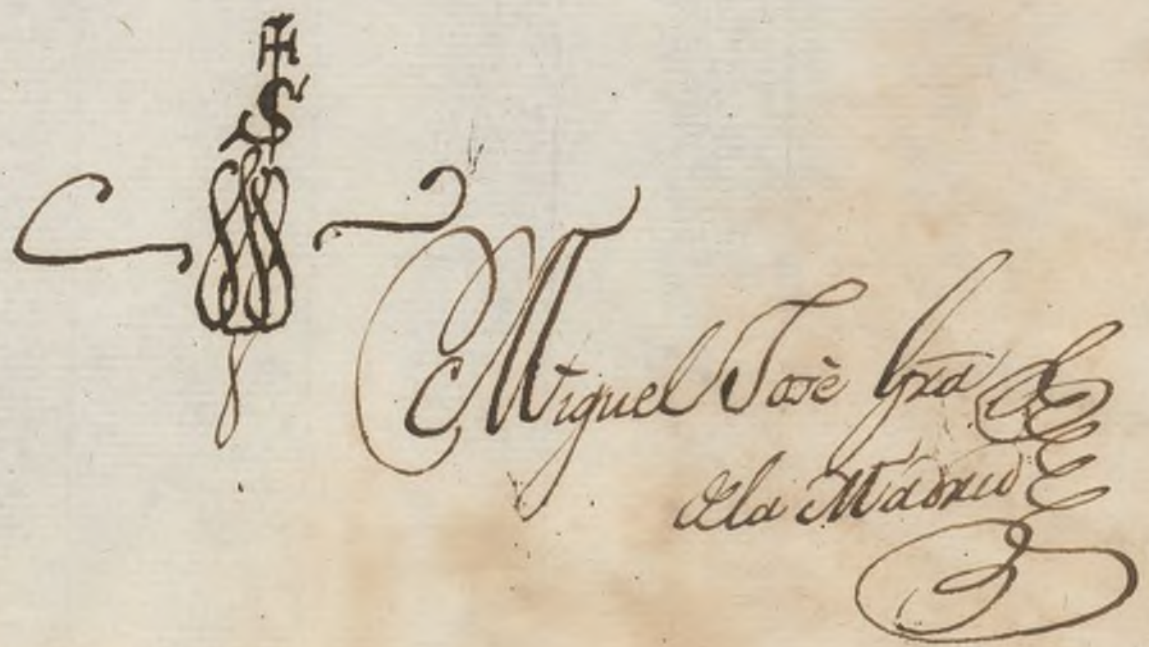 S
Miguel José Grã
dela Madrid